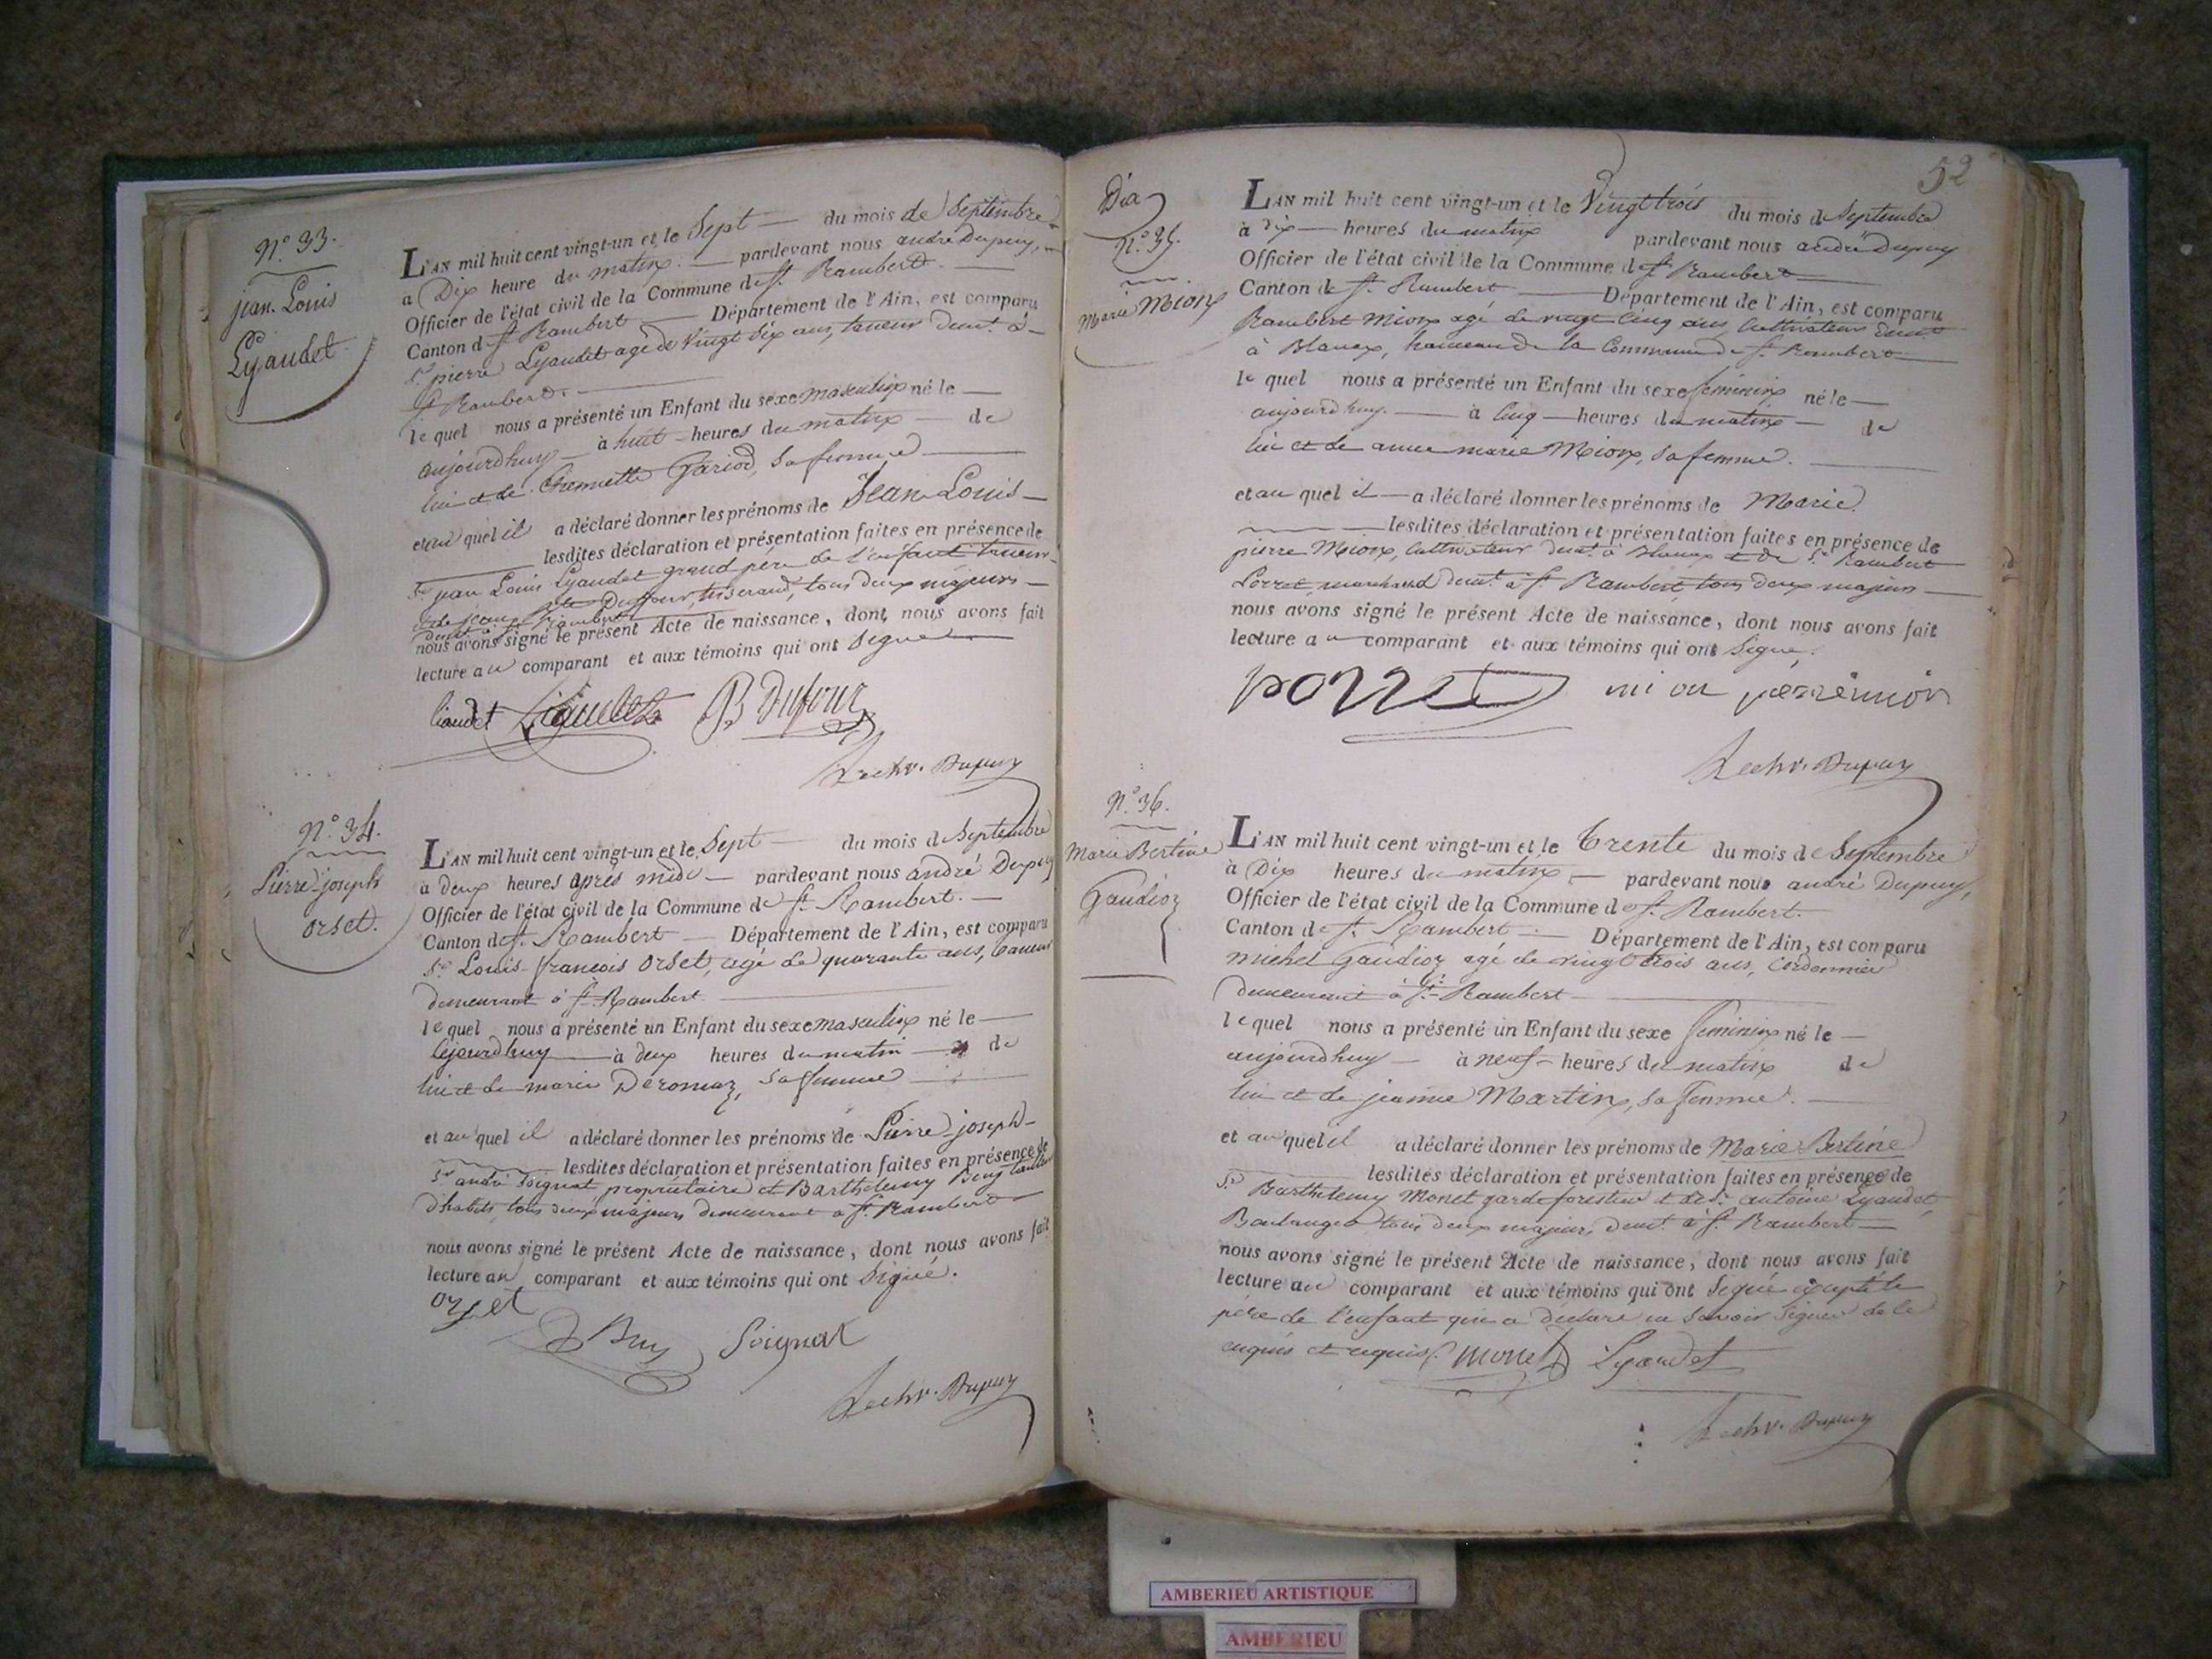 N.° 33.
jean-Louis
Lyaudet
L'AN mil huit cent vingt-un et le Sept du mois de Septembre
a Dix heure du matin. pardevant nous andré Dupuy,
Officier de l'état civil de la Commune de St. Rambert.
Canton de St. Rambert Département de l'Ain, est comparu
Sr. pierre Lyaudet agé de Vingt Six ans, taneur demt. à
St. Rambert.
le quel nous a présenté un Enfant du sexe masculin né le
aujourdhuy à huit heures du matin de
lui et de Gariod, sa femme
et au quel il a déclaré donner les prénoms de Jean-Louis
lesdites déclaration et présentation faites en présence de
Sr. jean Louis Lyaudet grand père de l'enfant taneur
et de jean Bte Duffour, tisserand, tous deux majeurs
demt. à St. Rambert
nous avons signé le présent Acte de naissance, dont nous avons fait
lecture au comparant et aux témoins qui ont Signé
liaudet Liaudet B Dufour
Dupuy
N.° 34.
Pierre-joseph
orset.
L'AN mil huit cent vingt-un et le Sept du mois de Septembre
à deux heures après midi pardevant nous andré Dupuy
Officier de l'état civil de la Commune de St. Rambert.
Canton de St. Rambert Département de l'Ain, est comparu
Sr. Louis-francois orset, agé de quarante ans, taneur
demeurant à St. Rambert
le quel nous a présenté un Enfant du sexe masculin né le
cejourdhuy à deux heures du matin de
lui et de marie Deromaz, sa femme
et au quel il a déclaré donner les prénoms de Pierre-joseph
lesdites déclaration et présentation faites en présence de
Sr. andré Soignat, propriétaire et Barthelemy Buy tailleur
d'habits, tous deux majeurs demeurant a St. Rambert
nous avons signé le présent Acte de naissance, dont nous avons fait
lecture au comparant et aux témoins qui ont Signé.
orset
Buy Soignat
Dupuy
52
N.° 35.
Marie Mions
L'AN mil huit cent vingt-un et le Vingt trois du mois de Septembre
à dix heures du matin pardevant nous andré Dupuy
Officier de l'état civil de la Commune de St. Rambert
Canton de St. Rambert Département de l'Ain, est comparu
Rambert Mions agé de vingt cinq ans, cultivateur demt.
à Blanax, hameau de la Commune de St. Rambert
le quel nous a présenté un Enfant du sexe féminin né le
aujourdhuy. à cinq heures du matin de
lui et de anne marie Mions, sa femme.
et au quel il a déclaré donner les prénoms de Marie
lesdites déclaration et présentation faites en présence de
pierre Mions, cultivateur demt. à Blanax et de Sr. Rambert
Porret, marchand demt. à St. Rambert, tous deux majeurs
nous avons signé le présent Acte de naissance, dont nous avons fait
lecture au comparant et aux témoins qui ont Signé.
porret mi on pierre mion
Dupuy
N.° 36.
Marie Bertine
Gaudioz
L'AN mil huit cent vingt-un et le Trente du mois de Septembre
à Dix heures du matin pardevant nous andré Dupuy,
Officier de l'état civil de la Commune de St. Rambert.
Canton de St. Rambert Département de l'Ain, est comparu
michel Gaudioz agé de vingt trois ans, cordonnier
demeurant à St. Rambert
le quel nous a présenté un Enfant du sexe féminin né le
aujourdhuy à neuf heures du matin de
lui et de jeanne Martin, sa femme.
et au quel il a déclaré donner les prénoms de Marie Bertine
lesdites déclaration et présentation faites en présence de
Sr. Barthelemy Monet garde forestier et de Sr. antoine Lyaudet,
Boulanger tous deux majeurs, demt. à St. Rambert
nous avons signé le présent Acte de naissance, dont nous avons fait
lecture au comparant et aux témoins qui ont Signé excepté le
père de l'enfant qui a déclaré ne savoir signer de ce
enquis et requis. monet Lyaudet
Dupuy
AMBERIEU ARTISTIQUE
AMBERIEU